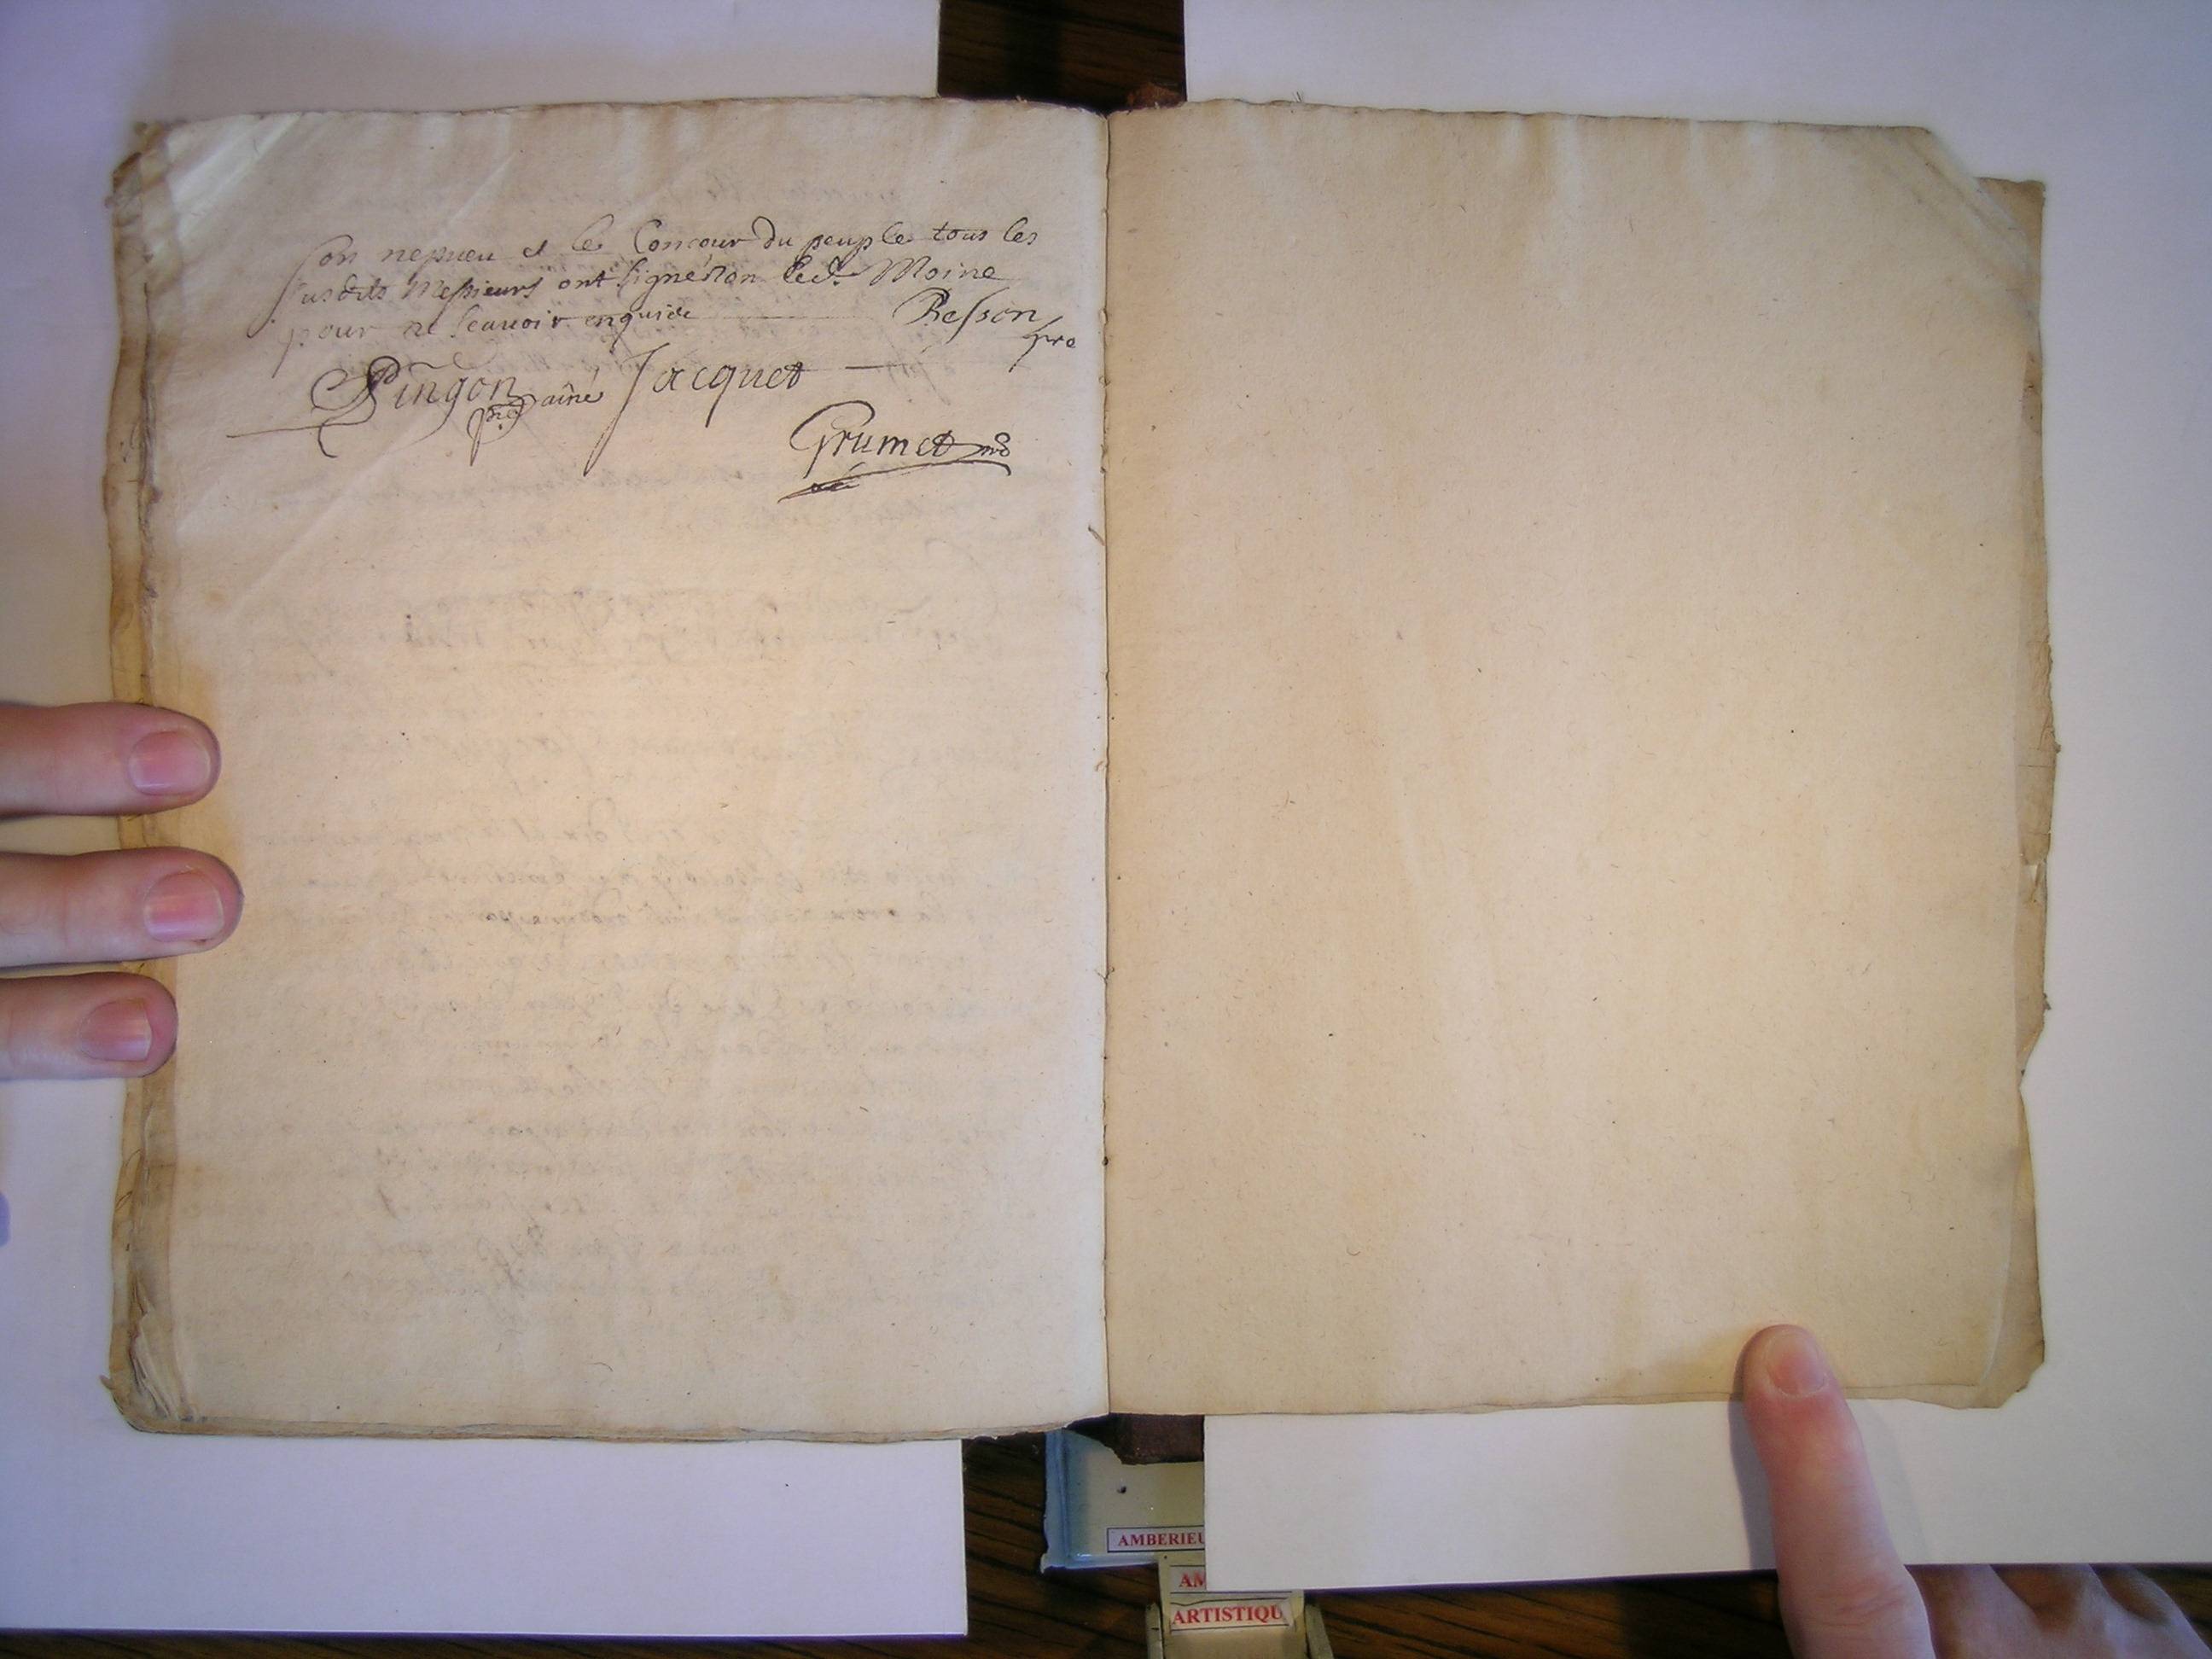 son nepueu et le Concour du peuple tous les
susdits Messieurs ont signé non led. Moine
pour ne scauoir enquis
Besson
pre
Pingon ainé Jacquet
Grumet
AMBERIEU
AM
ARTISTIQU